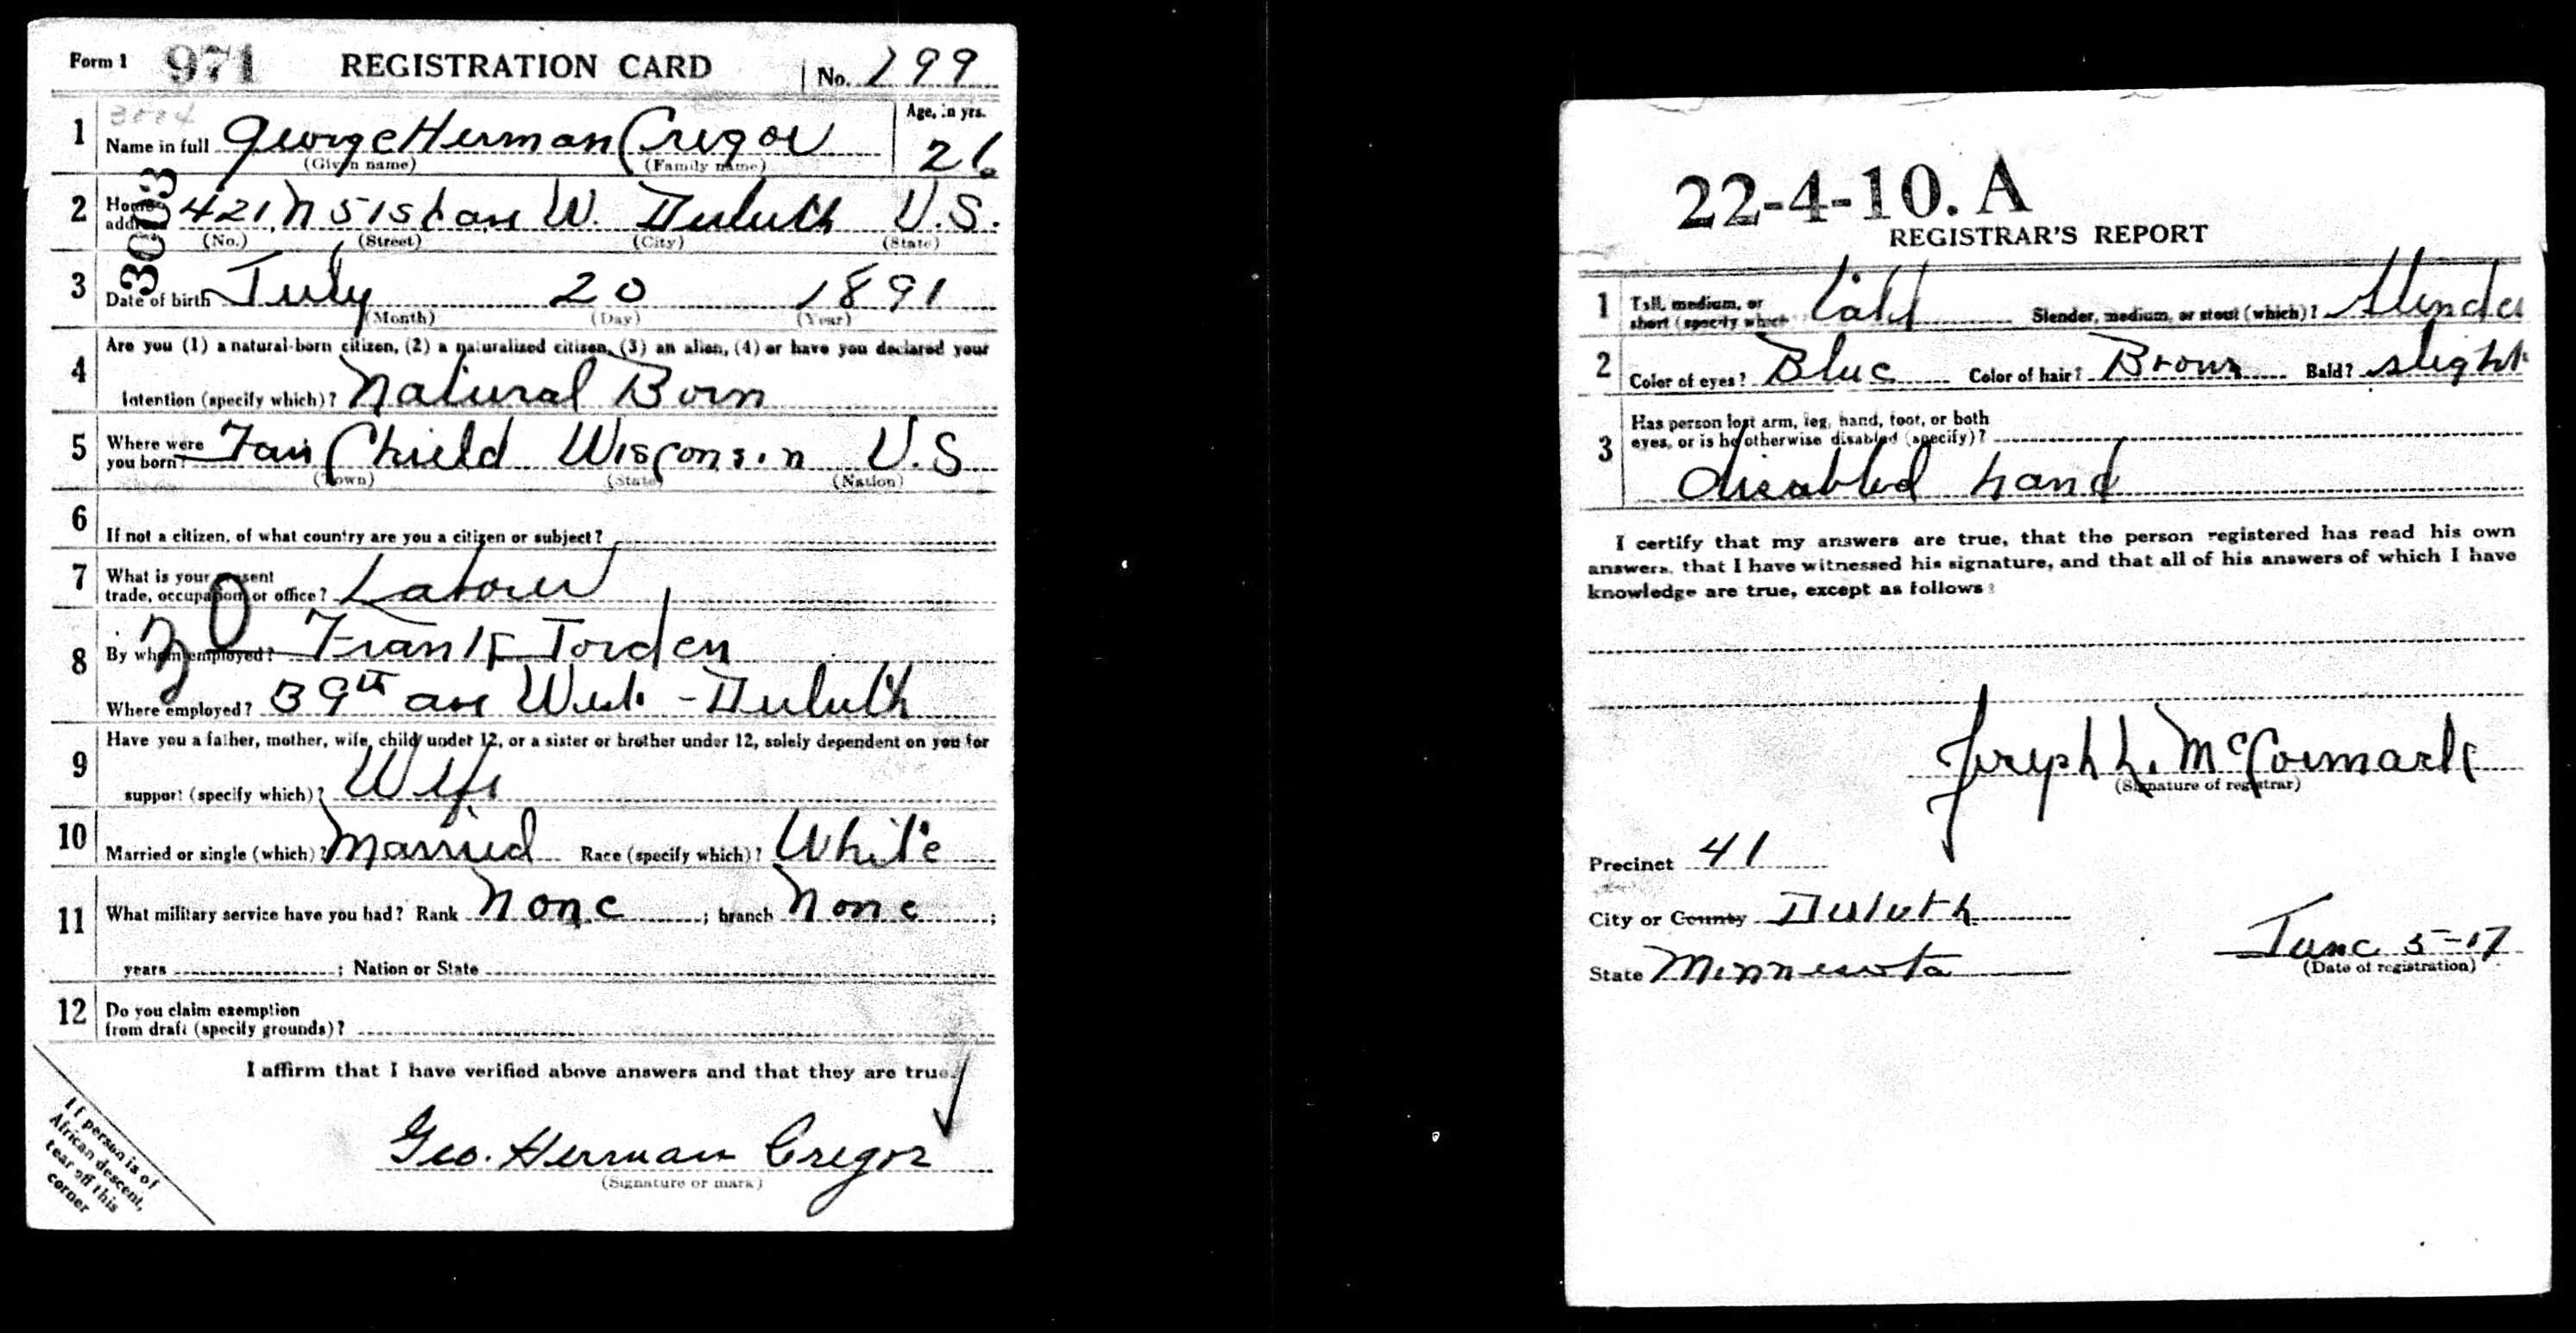 Form 1 971 REGISTRATION CARD No. 199
3004
1 Name in full George Herman Cregor Age, in yrs. 26
(Given name) (Family name)
2 Home address 421 N 51st ave W. Duluth U.S.
(No.) (Street) (City) (State)
3 Date of birth July 20 1891
(Month) (Day) (Year)
4 Are you (1) a natural-born citizen, (2) a naturalized citizen, (3) an alien, (4) or have you declared your
intention (specify which)? Natural Born
5 Where were you born? Fair Child Wisconsin U.S
(Town) (State) (Nation)
6 If not a citizen, of what country are you a citizen or subject?
7 What is your present
trade, occupation, or office? Laborer
20
8 By whom employed? Frank Jorden
Where employed? 39th ave West - Duluth
9 Have you a father, mother, wife, child under 12, or a sister or brother under 12, solely dependent on you for
support (specify which)? Wife
10 Married or single (which)? Married Race (specify which)? White
11 What military service have you had? Rank None ; branch None ;
years ; Nation or State
12 Do you claim exemption
from draft (specify grounds)?
I affirm that I have verified above answers and that they are true.
Geo. Herman Cregor
(Signature or mark)
If person is of
African descent,
tear off this
corner
22-4-10. A
REGISTRAR'S REPORT
1 Tall, medium, or
short (specify which) Tall Slender, medium, or stout (which)? Slender
2 Color of eyes? Blue Color of hair? Brown Bald? slight
3 Has person lost arm, leg, hand, foot, or both
eyes, or is he otherwise disabled (specify)?
disabled hand
I certify that my answers are true, that the person registered has read his own
answers, that I have witnessed his signature, and that all of his answers of which I have
knowledge are true, except as follows:
Joseph L. McCormack
(Signature of registrar)
Precinct 41
City or County Duluth
State Minnesota
June 5-17
(Date of registration)